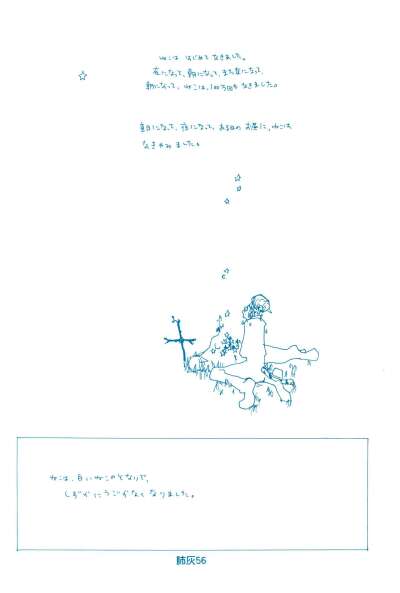 ねこは はじめて なきました。
夜になって、朝になって、また夜になって、
朝になって、ねこは、100万回も なきました。
朝になって、夜になって、ある日の お昼に、ねこは
なきやみました。
ねこは、白いねこのとなりで、
しずかにうごかなくなりました。
肺灰56